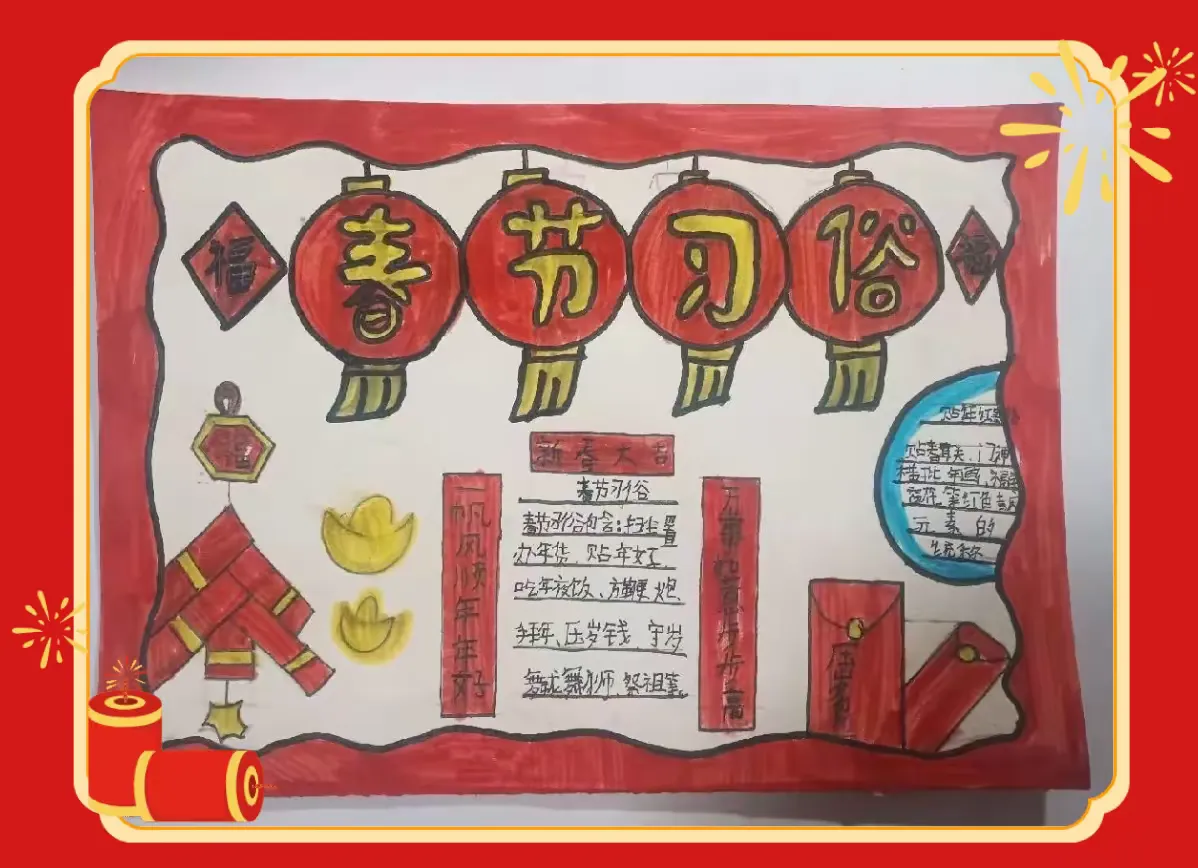 春节习俗
福
福
福
新春大吉
一帆风顺年年好
万事如意步步高
春节习俗
春节习俗包含:扫尘、置
办年货、贴年红、
吃年夜饭、放鞭炮、
拜年、压岁钱、守岁
舞龙舞狮、祭祖等。
贴年红
贴春联、门神
年画、福
红色
元素的